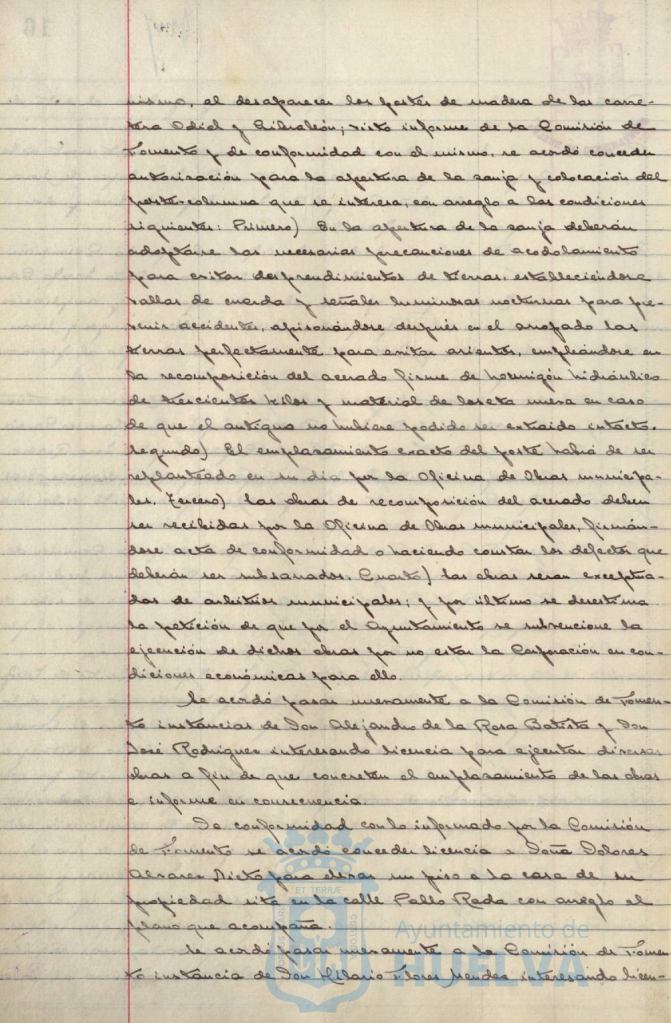 mismo, al desaparecer los postes de madera de las carre-
tera Odiel y Gibraleón; visto informe de la Comisión de
Fomento y de conformidad con el mismo, se acordó conceder
autorización para la apertura de la zanja y colocación del
poste-columna que se interesa, con arreglo a las condiciones
siguientes: Primero) En la apertura de la zanja deberán
adoptarse las necesarias precauciones de acodalamiento
para evitar desprendimientos de tierras, estableciéndose
vallas de cuerda y señales luminosas nocturnas para pre-
venir accidentes, apisonándose después en el arropado las
tierras perfectamente para evitar asientos, empleándose en
la recomposición del acerado firme de hormigón hidráulico
de trescientos kilos y material de loseta nueva en caso
de que el antiguo no hubiere podido ser extraido intacto.
Segundo) El emplazamiento exacto del poste habrá de ser
replanteado en su dia por la Oficina de Obras municipa-
les. Tercero) Las obras de recomposición del acerado deben
ser recibidas por la Oficina de Obras municipales, firmán-
dose acta de conformidad o haciendo constar los defectos que
deberán ser subsanados. Cuarto) las obras seran exceptua-
das de arbitrios municipales; y por último se desestima
la petición de que por el Ayuntamiento se subvencione la
ejecución de dichas obras por no estar la Corporación en con-
diciones económicas para ello.
Se acordó pasar nuevamente a la Comisión de Fomen-
to instancias de Don Alejandro de la Rosa Batista y Don
José Rodriguez interesando licencia para ejecutar diversas
obras a fin de que concreten el emplazamiento de las obras
e informe en consecuencia.
De conformidad con lo informado por la Comisión
de Fomento se acordó conceder licencia a Doña Dolores
Alvarez Nieto para elevar un piso a la casa de su
propiedad sita en la calle Pablo Rada con arreglo al
plano que acompaña.
Se acordó pasar nuevamente a la Comisión de Fomen-
to instancia de Don Hilario Flores Mendez interesando licen-
Ayuntamiento de
HUELVA